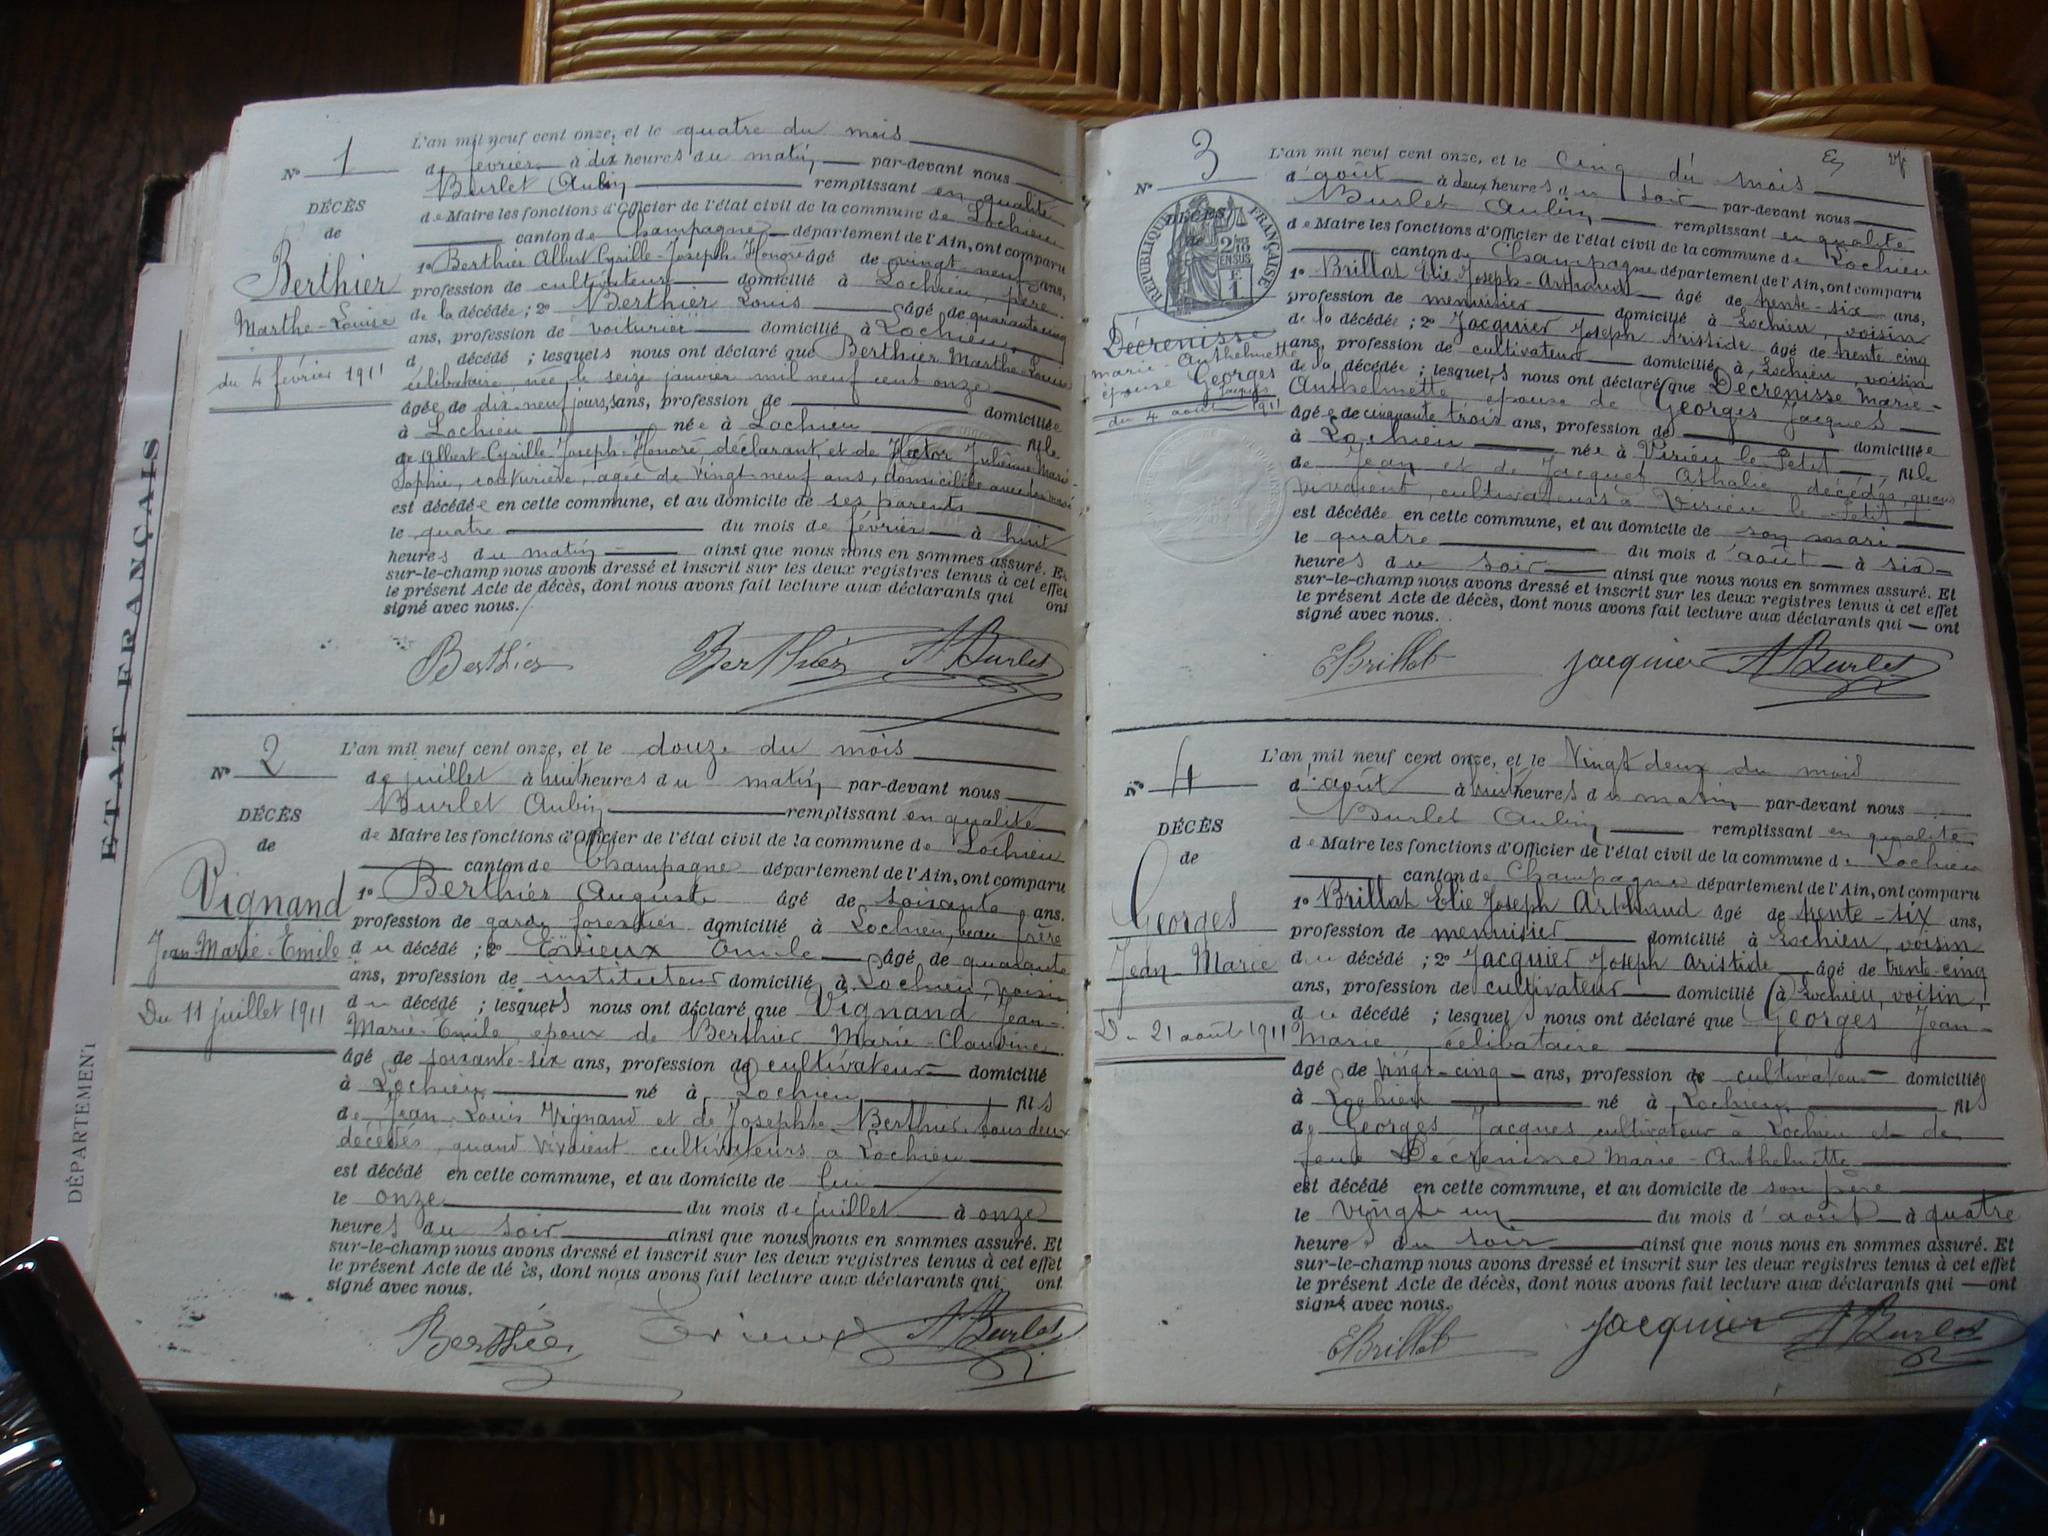 N° 1
DÉCÈS
de
Berthier
Marthe-Louise
du 4 février 1911
L'an mil neuf cent onze, et le quatre du mois
de février à dix heures du matin par-devant nous
Burlet Aubin remplissant en qualité
de Maire les fonctions d'Officier de l'état civil de la commune de Lochieu
canton de Champagne département de l'Ain, ont comparu
1° Berthier Albert Cyrille-Joseph-Honoré âgé de vingt neuf ans,
profession de cultivateur domicilié à Lochieu, père
de la décédée ; 2° Berthier Louis âgé de quarante cinq
ans, profession de voiturier domicilié à Lochieu,
d décédé ; lesquels nous ont déclaré que Berthier Marthe-Louise
célibataire, née le seize janvier mil neuf cent onze
âgée de dix-neuf jours, ans, profession de domiciliée
à Lochieu née à Lochieu fille
de Albert-Cyrille-Joseph-Honoré, déclarant, et de Hector Julienne Marie-
Sophie, couturière, agée de vingt-neuf ans, domiciliée avec son mari
est décédée en cette commune, et au domicile de ses parents
le quatre du mois de février à huit
heures du matin ainsi que nous nous en sommes assuré. Et
sur-le-champ nous avons dressé et inscrit sur les deux registres tenus à cet effet
le présent Acte de décès, dont nous avons fait lecture aux déclarants qui ont
signé avec nous.
Berthier Berthier A Burlet
N° 2
DÉCÈS
de
Vignand
Jean-Marie-Emile
Du 11 juillet 1911
L'an mil neuf cent onze, et le douze du mois
de juillet à huit heures du matin par-devant nous
Burlet Aubin remplissant en qualité
de Maire les fonctions d'Officier de l'état civil de la commune de Lochieu
canton de Champagne département de l'Ain, ont comparu
1° Berthier Auguste âgé de soixante ans.
profession de garde forestier domicilié à Lochieu, beau frère
du décédé ; 2° Erieux Emile âgé de quarante
ans, profession de instituteur domicilié à Lochieu, voisin
du décédé ; lesquels nous ont déclaré que Vignand Jean-
Marie-Emile, epoux de Berthier Marie-Claudine
âgé de soixante-six ans, profession de cultivateur domicilié
à Lochieu né à Lochieu fils
de Jean-Louis Vignand et de Josephte Berthier, tous deux
décédés, quand vivaient cultivateurs à Lochieu
est décédé en cette commune, et au domicile de lui
le onze du mois de juillet à onze
heures du soir ainsi que nous nous en sommes assuré. Et
sur-le-champ nous avons dressé et inscrit sur les deux registres tenus à cet effet
le présent Acte de décès, dont nous avons fait lecture aux déclarants qui ont
signé avec nous.
Berthier Erieux A Burlet
N° 3
DÉCÈS
RÉPUBLIQUE FRANÇAISE
2/10 EN SUS
Décrenisse
marie-Anthelmette
épouse Georges
Jacques
du 4 août 1911
L'an mil neuf cent onze, et le cinq du mois
d'août à deux heures du soir par-devant nous
Burlet Aubin remplissant en qualité
de Maire les fonctions d'Officier de l'état civil de la commune de Lochieu
canton de Champagne département de l'Ain, ont comparu
1° Brillat Elie Joseph-Arthaud âgé de trente-six ans,
profession de menuisier domicilié à Lochieu, voisin
de la décédée ; 2° Jacquier Joseph Aristide âgé de trente cinq
ans, profession de cultivateur domicilié à Lochieu, voisin
de la décédée ; lesquels nous ont déclaré que Décrenisse Marie-
Anthelmette, épouse de Georges Jacques
âgée de cinquante trois ans, profession de domiciliée
à Lochieu née à Virieu le Petit fille
de Jean et de Jacquet Athalie, décédés, quand
vivaient, cultivateurs à Virieu le Petit
est décédée en cette commune, et au domicile de son mari
le quatre du mois d'août à six
heures du soir ainsi que nous nous en sommes assuré. Et
sur-le-champ nous avons dressé et inscrit sur les deux registres tenus à cet effet
le présent Acte de décès, dont nous avons fait lecture aux déclarants qui ont
signé avec nous.
EBrillat Jacquier A Burlet
N° 4
DÉCÈS
de
Georges
Jean Marie
Du 21 août 1911
L'an mil neuf cent onze, et le Vingt deux du mois
d'août à huit heures du matin par-devant nous
Burlet Aubin remplissant en qualité
de Maire les fonctions d'Officier de l'état civil de la commune de Lochieu
canton de Champagne département de l'Ain, ont comparu
1° Brillat Elie Joseph Arthaud âgé de trente-six ans,
profession de menuisier domicilié à Lochieu, voisin
du décédé ; 2° Jacquier Joseph Aristide âgé de trente-cinq
ans, profession de cultivateur domicilié à Lochieu, voisin
du décédé ; lesquels nous ont déclaré que Georges Jean-
Marie, célibataire
âgé de vingt-cinq ans, profession de cultivateur domicilié
à Lochieu né à Lochieu fils
de Georges Jacques cultivateur à Lochieu et de
feue Décrenisse Marie-Anthelmette
est décédé en cette commune, et au domicile de son père
le vingt un du mois d'août à quatre
heures du soir ainsi que nous nous en sommes assuré. Et
sur-le-champ nous avons dressé et inscrit sur les deux registres tenus à cet effet
le présent Acte de décès, dont nous avons fait lecture aux déclarants qui ont
signé avec nous.
EBrillat Jacquier A Burlet
ETAT FRANÇAIS
DÉPARTEMENT